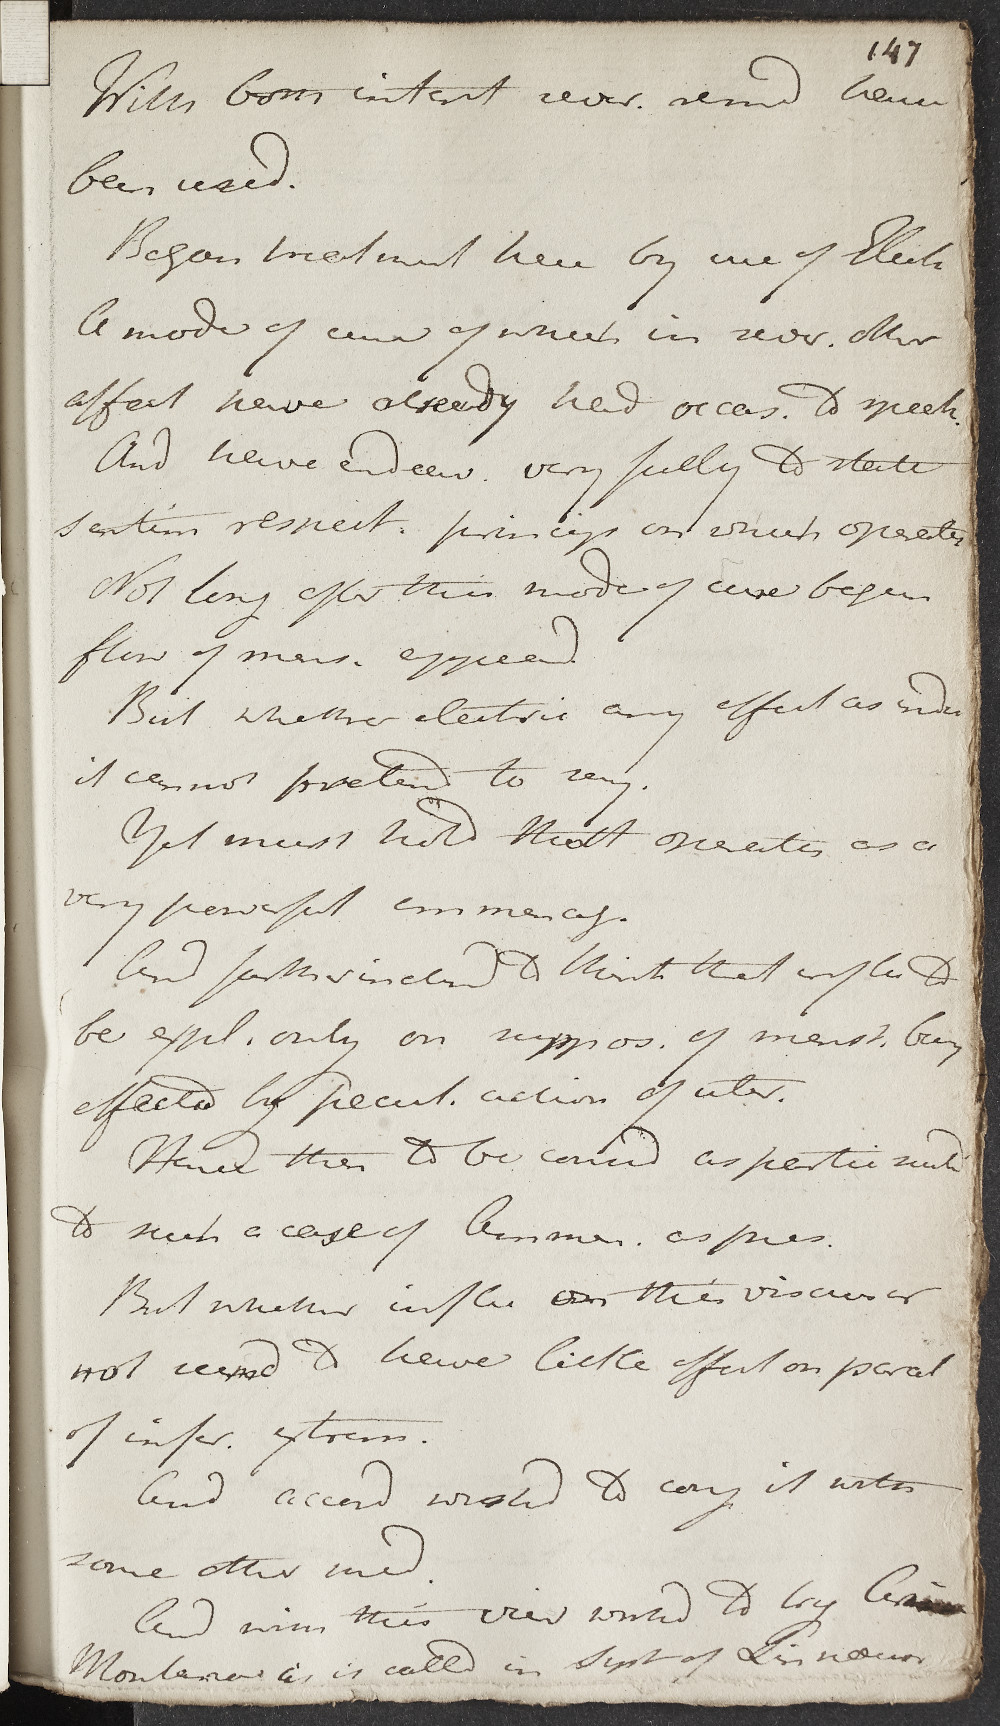 147
With both intent sever. remd have
been used.
Began treatment here by use of Elect
A mode of cure of which in sever. other
affect have already had occas. to speak.
And have endeav. very fully to state
sentim respect. princips on which operates
Not long after this mode of cure began
flow of mens. appeard
But whether electric any effect as inducing
it cannot pretend to say.
Yet must hold that operates as a
very powerful emmenag.
And farther inclind to think that influ to
be expl. only on suppos. of menst. being
effected by pecul. action of uter.
Hence then to be considd as particu suited
to such a case of Amen. as pres.
But whether influ over this viscus or
not seemd to have little effect on paral
of infer. extrem.
And accord wishd to conj it with
some other med.
And with this view wishd to try
Montana as is calld in Syst of Linnaeus